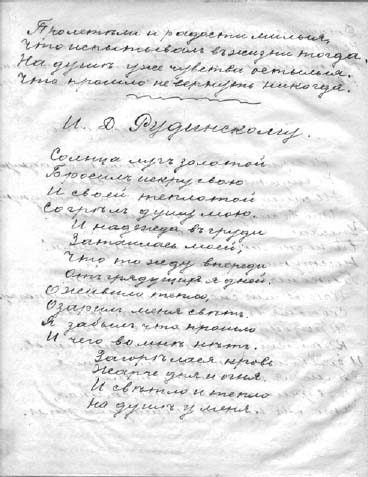 Пролетѣли и радости милыя,
Что испытывалъ въ жизни тогда.
На душѣ уже чувства остылыя.
Что прошло не вернуть никогда.
И. Д. Рудинскому.
Солнца лучъ золотой
Бросилъ искру свою
И своей теплотой
Согрѣлъ душу мою.
И надежда въ груди
Затаилась моей
Что то жду впереди
Отъ грядущихъ я дней.
Оживило тепло,
Озарилъ меня свѣтъ.
Я забылъ что прошло
И чего во мнѣ нѣтъ.
Загорѣлася кровь
Жарче дня и огня.
И свѣтло и тепло
На душѣ у меня.